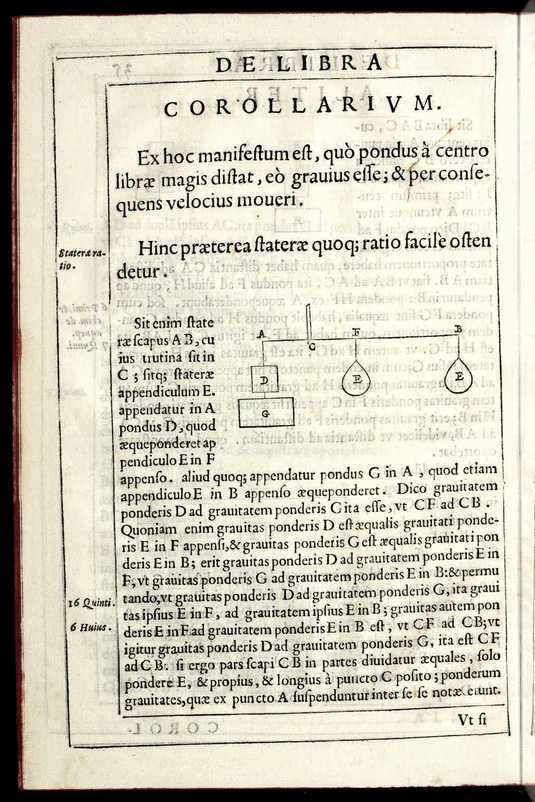 DE LIBRA
COROLLARIVM.
Ex hoc manifestum est, quò pondus à centro
libræ magis distat, eò grauius esse; & per conse-
quens velocius moueri.
Hinc præterea stateræ quoq; ratio facilè osten
detur.
Stateræ ra-
tio.
Sit enim state
ræ scapus AB, cu
ius trutina sit in
C; sitq; stateræ
appendiculum E.
appendatur in A
pondus D, quod
æqueponderet ap
pendiculo E in F
A
F
B
C
D
E
E
G
appenso. aliud quoq; appendatur pondus G in A, quod etiam
appendiculo E in B appenso æqueponderet. Dico grauitatem
ponderis D ad grauitatem ponderis G ita esse, vt CF ad CB.
Quoniam enim grauitas ponderis D est æqualis grauitati ponde-
ris E in F appensi, & grauitas ponderis G est æqualis grauitati pon
deris E in B; erit grauitas ponderis D ad grauitatem ponderis E in
F, vt grauitas ponderis G ad grauitatem ponderis E in B: & permu
16 Quinti.
tando, vt grauitas ponderis D ad grauitatem ponderis G, ita graui
tas ipsius E in F, ad grauitatem ipsius E in B; grauitas autem pon
6 Huius.
deris E in F ad grauitatem ponderis E in B est, vt CF ad CB; vt
igitur grauitas ponderis D ad grauitatem ponderis G, ita est CF
ad CB. si ergo pars scapi CB in partes diuidatur æquales, solo
pondere E, & propius, & longius à puncto C posito; ponderum
grauitates, quæ ex puncto A suspenduntur inter se se notæ erunt.
Vt si